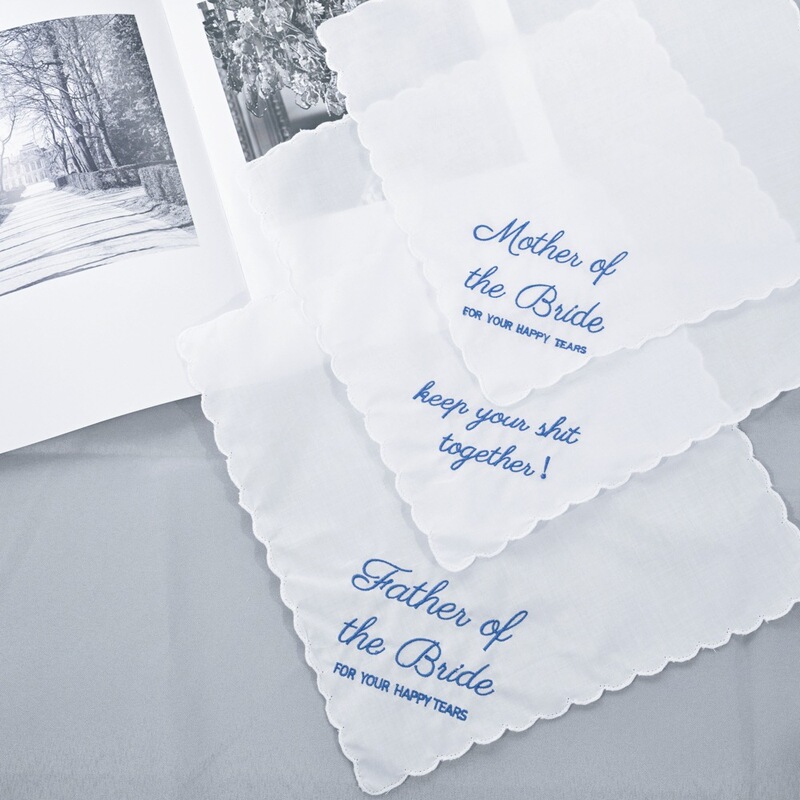 Mother of
the Bride
FOR YOUR HAPPY TEARS
keep your shit
together!
Father of
the Bride
FOR YOUR HAPPY TEARS